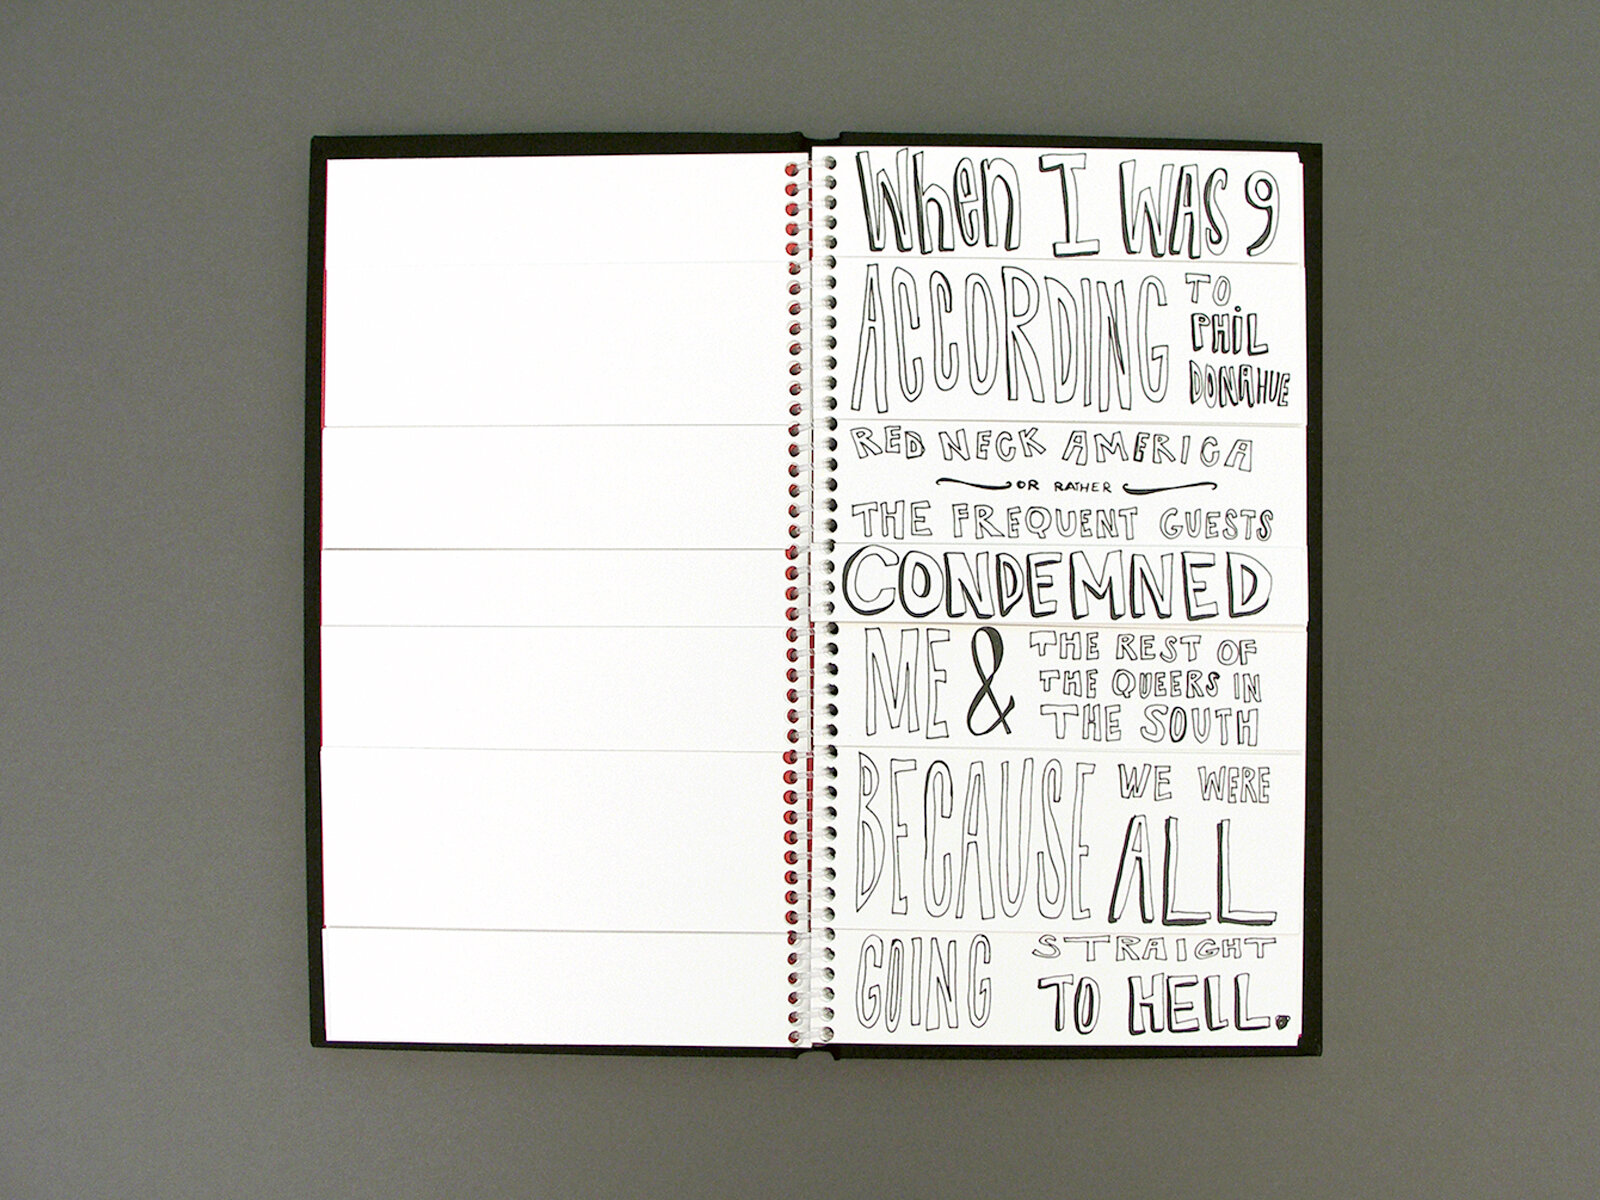 When I WAS 9
ACCORDING TO PHIL DONAHUE
RED NECK AMERICA
OR RATHER
THE FREQUENT GUESTS
CONDEMNED
ME & THE REST OF THE QUEERS IN THE SOUTH
BECAUSE WE WERE ALL
GOING STRAIGHT TO HELL.